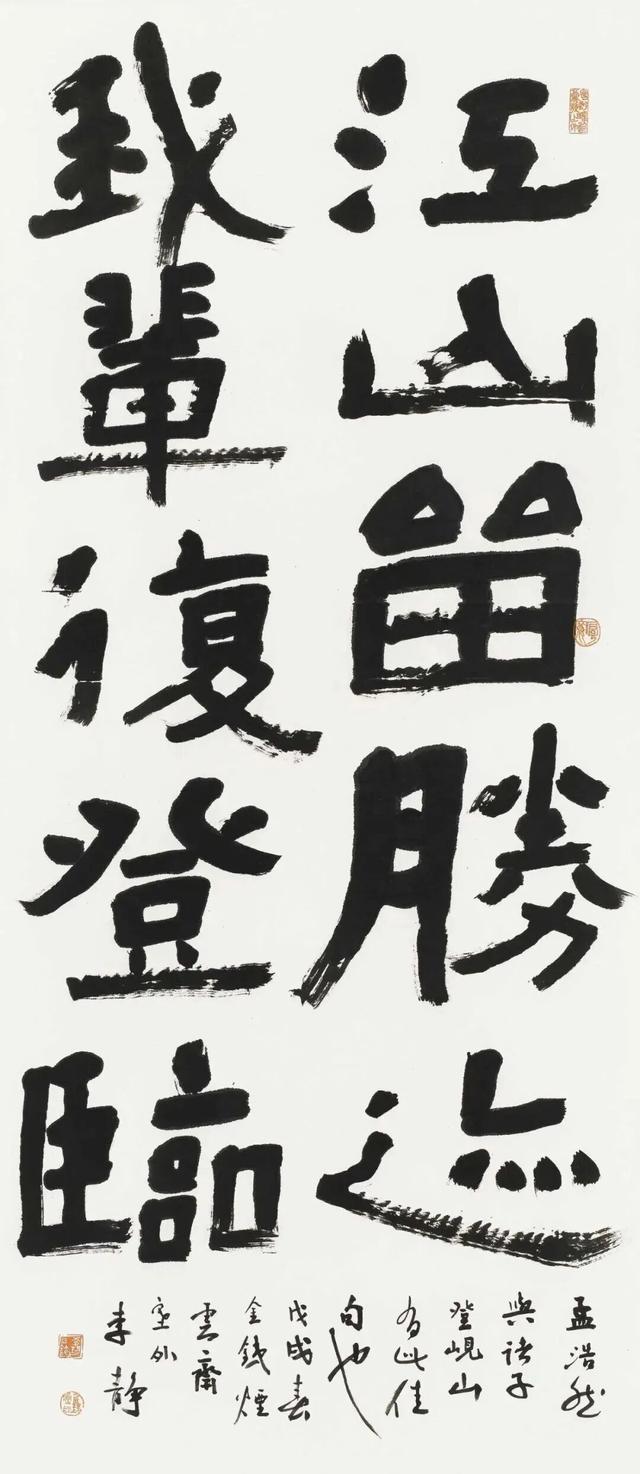 江山留勝迹
我輩復登臨
孟浩然
與诸子
登峴山
有此佳
句也
戊戌春
金錢煙
雲齋
李靜